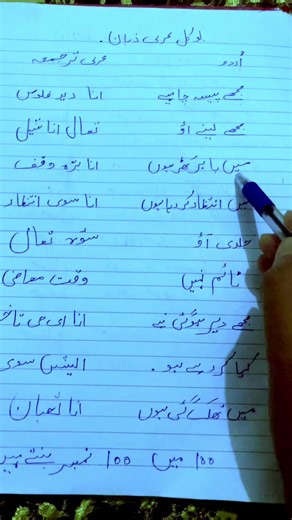 لوکل عربی زبان.
اُردو عربی ترجمعہ
مجھے پیسہ چاہیے انا دیر فلوس
مجھے لینے آؤ تعال انا شیل
میں باہر کھڑی ہوں انا برّہ وقف
میں انتظار کر رہا ہوں انا سوی انتظار
جلدی آؤ سرّعہ تعال
ٹائم نہیں وقت معافی
مجھے دیر ہو گئی ہے انا ای جی تاخ
کیا کر رہے ہو. الیش سوی
میں تھک گئی ہوں انا تعبان
100 میں 100 نمبر بنتے ہیں